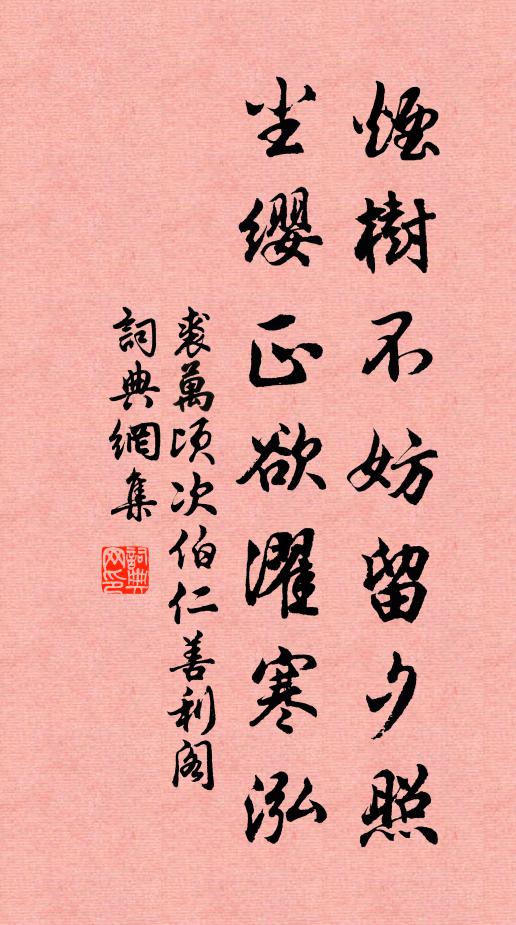 煙樹不妨留夕照
尘纓正欲濯寒泓
裘萬頃次伯仁善利阁
詞典網集
詞典网印